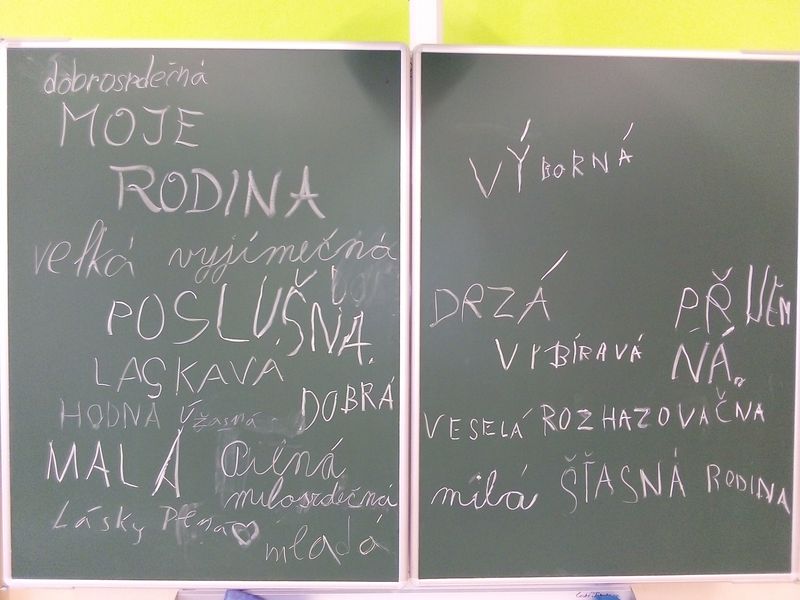 dobrosrdečná
MOJE
RODINA
velká vyjímečná
POSLUŠNÁ.
LASKAVÁ
HODNÁ úžasná DOBRÁ
MALÁ pilná
milosrdečná
Lásky Plná♡
mladá
VÝBORNÁ
DRZÁ PŘÍJEM
VYBÍRAVÁ NÁ.
VESELÁ ROZHAZOVAČNA
milá ŠŤASNÁ RODINA